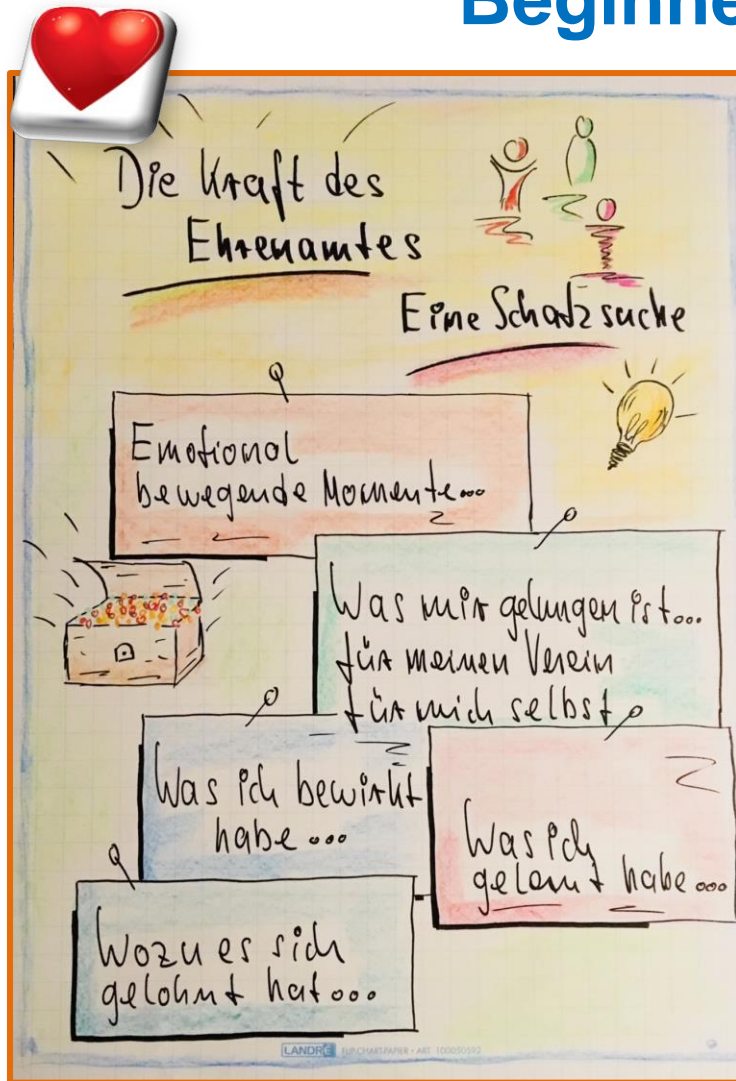 Beginne
Die Kraft des
Ehrenamtes
Eine Schatzsuche
Emotional
bewegende Momente...
Was mir gelungen ist...
für meinen Verein
für mich selbst
Was ich bewirkt
habe...
Was ich
gelernt habe...
Wozu es sich
gelohnt hat...
LANDRÉ FLIPCHART-PAPIER • ART. 100050592